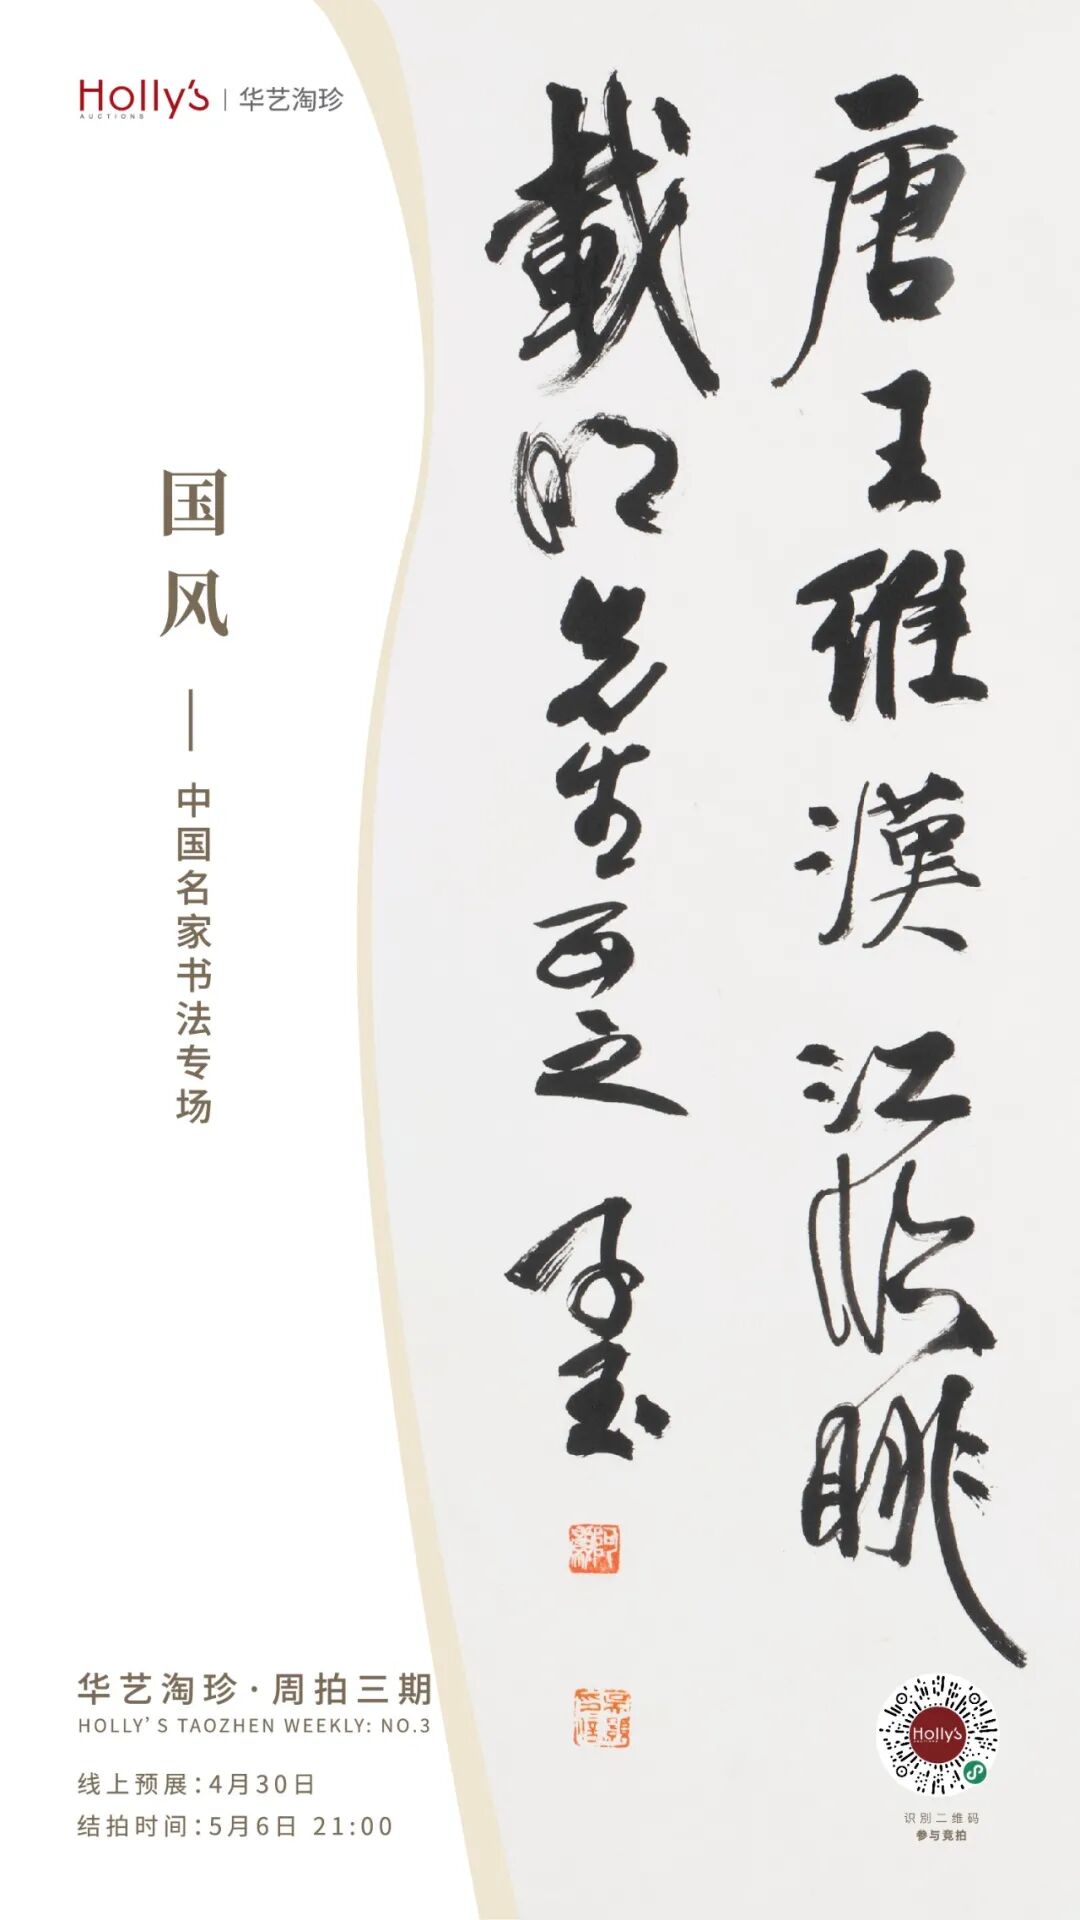 Holly's
AUCTIONS
华艺淘珍
国风
中国名家书法专场
唐王维漢江臨眺
載明先生正之 子玉
华艺淘珍·周拍三期
HOLLY'S TAOZHEN WEEKLY: NO.3
线上预展:4月30日
结拍时间:5月6日 21:00
Holly's
AUCTIONS
识别二维码
参与竞拍